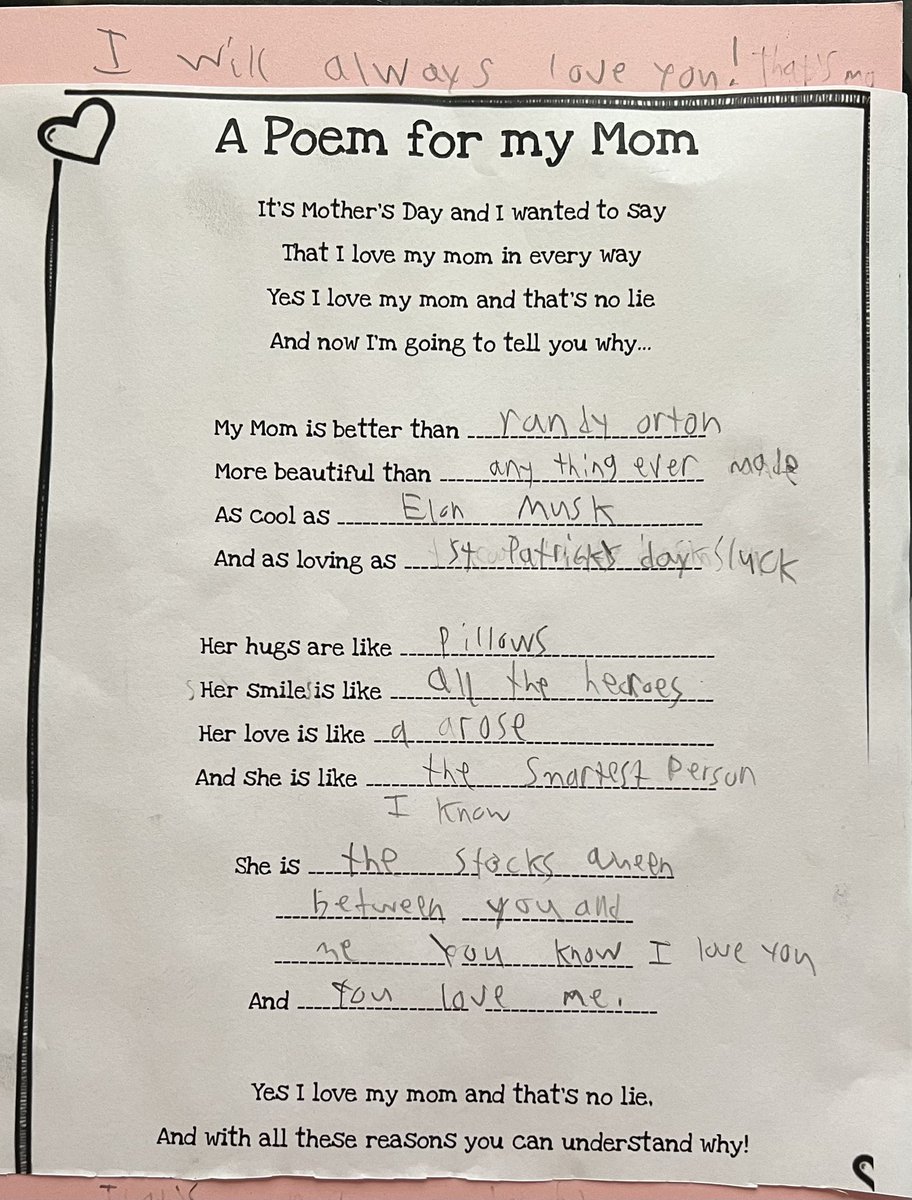 I will always love you! that's my
A Poem for my Mom
It's Mother's Day and I wanted to say
That I love my mom in every way
Yes I love my mom and that's no lie
And now I'm going to tell you why...
My Mom is better than randy orton
More beautiful than any thing ever made
As cool as Elon Musk
And as loving as st Patricks day sluck
Her hugs are like pillows
Her smile is like all the heroes
Her love is like a arose
And she is like the smartest person
I know
She is the stocks queen
between you and
me you know I love you
And you love me.
Yes I love my mom and that's no lie,
And with all these reasons you can understand why!